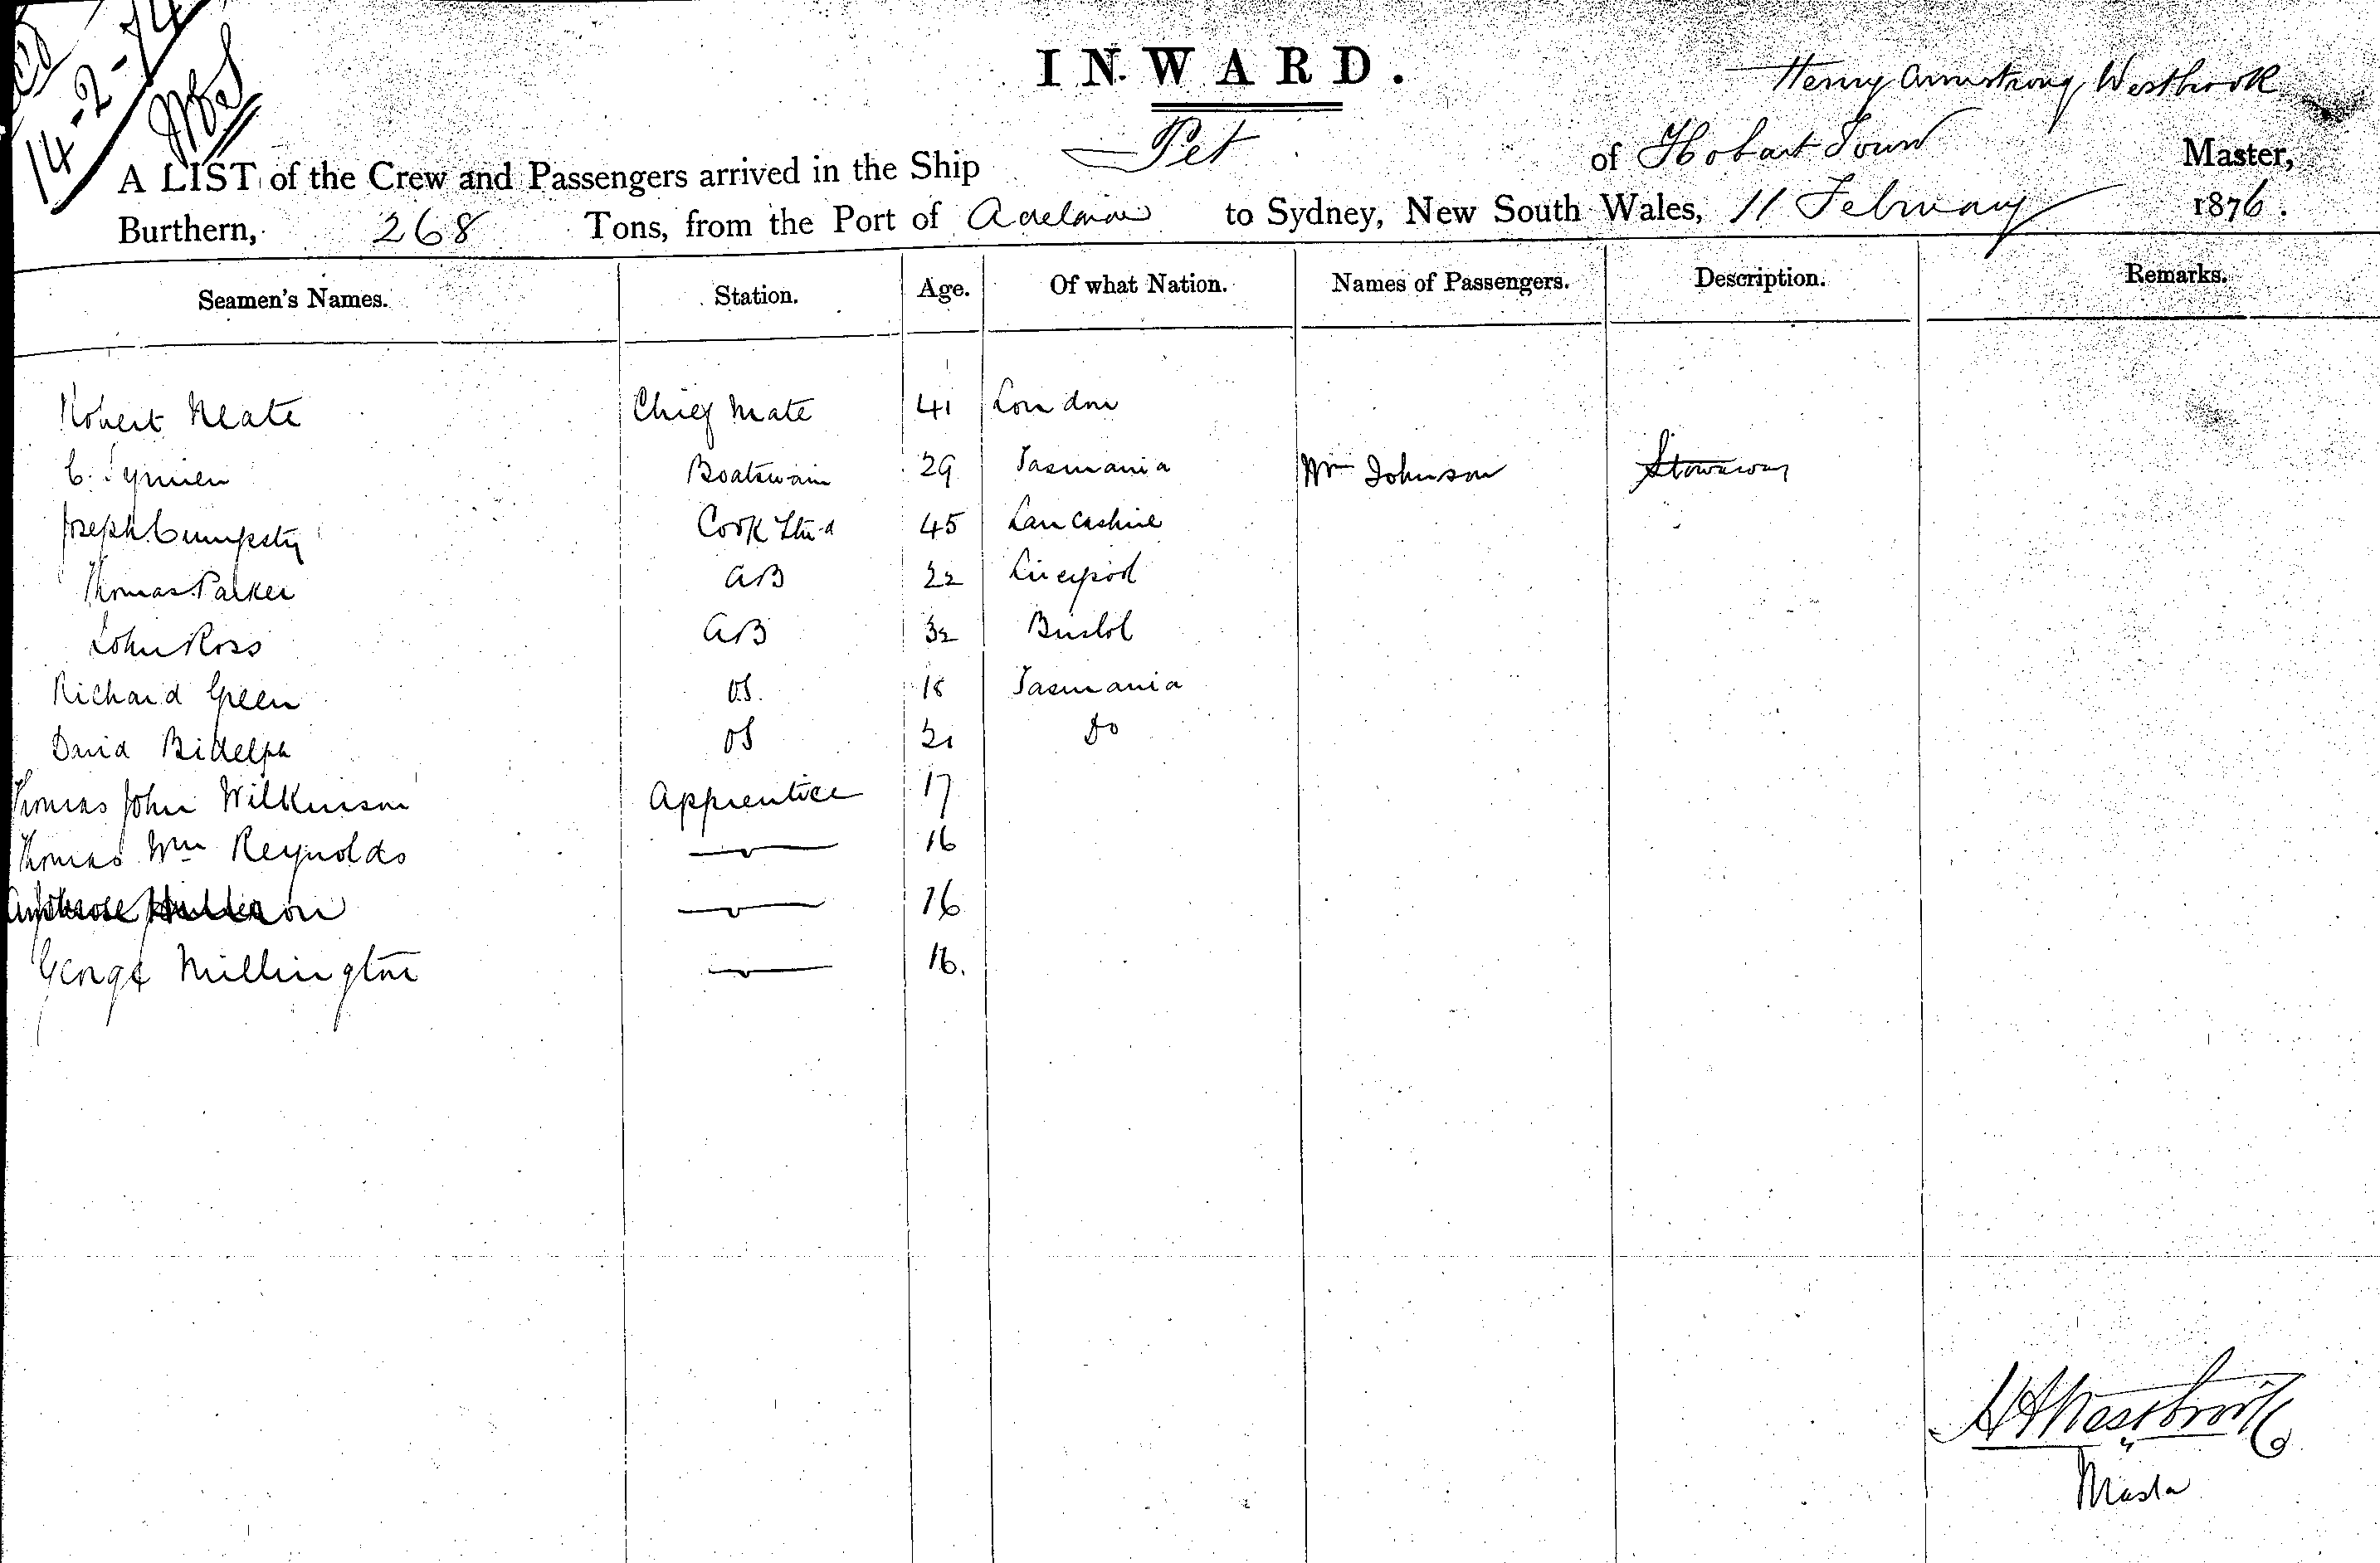 14-2-74
INWARD.
Henry Armstrong Westbrook
A LIST of the Crew and Passengers arrived in the Ship Pet of Hobart Town Master,
Burthern, 268 Tons, from the Port of Adelaide to Sydney, New South Wales, 11 February 1876.
Seamen's Names. Station. Age. Of what Nation. Names of Passengers. Description. Remarks.
Robert Neate Chief Mate 41 London
C. Boatswain 29 Tasmania Wm Johnson Stowaway
Joseph Cumpsty Cook Stu-d 45 Lancashire
Thomas Parker AB 22 Liverpool
John Ross AB 32 Bristol
Richard Green OS. 18 Tasmania
David Bidelph OS 21 Do
Thomas John Wilkinson Apprentice 17
Thomas Wm Reynolds 16
Ambrose 16
George Millington 16.
HA Westbrook
Master